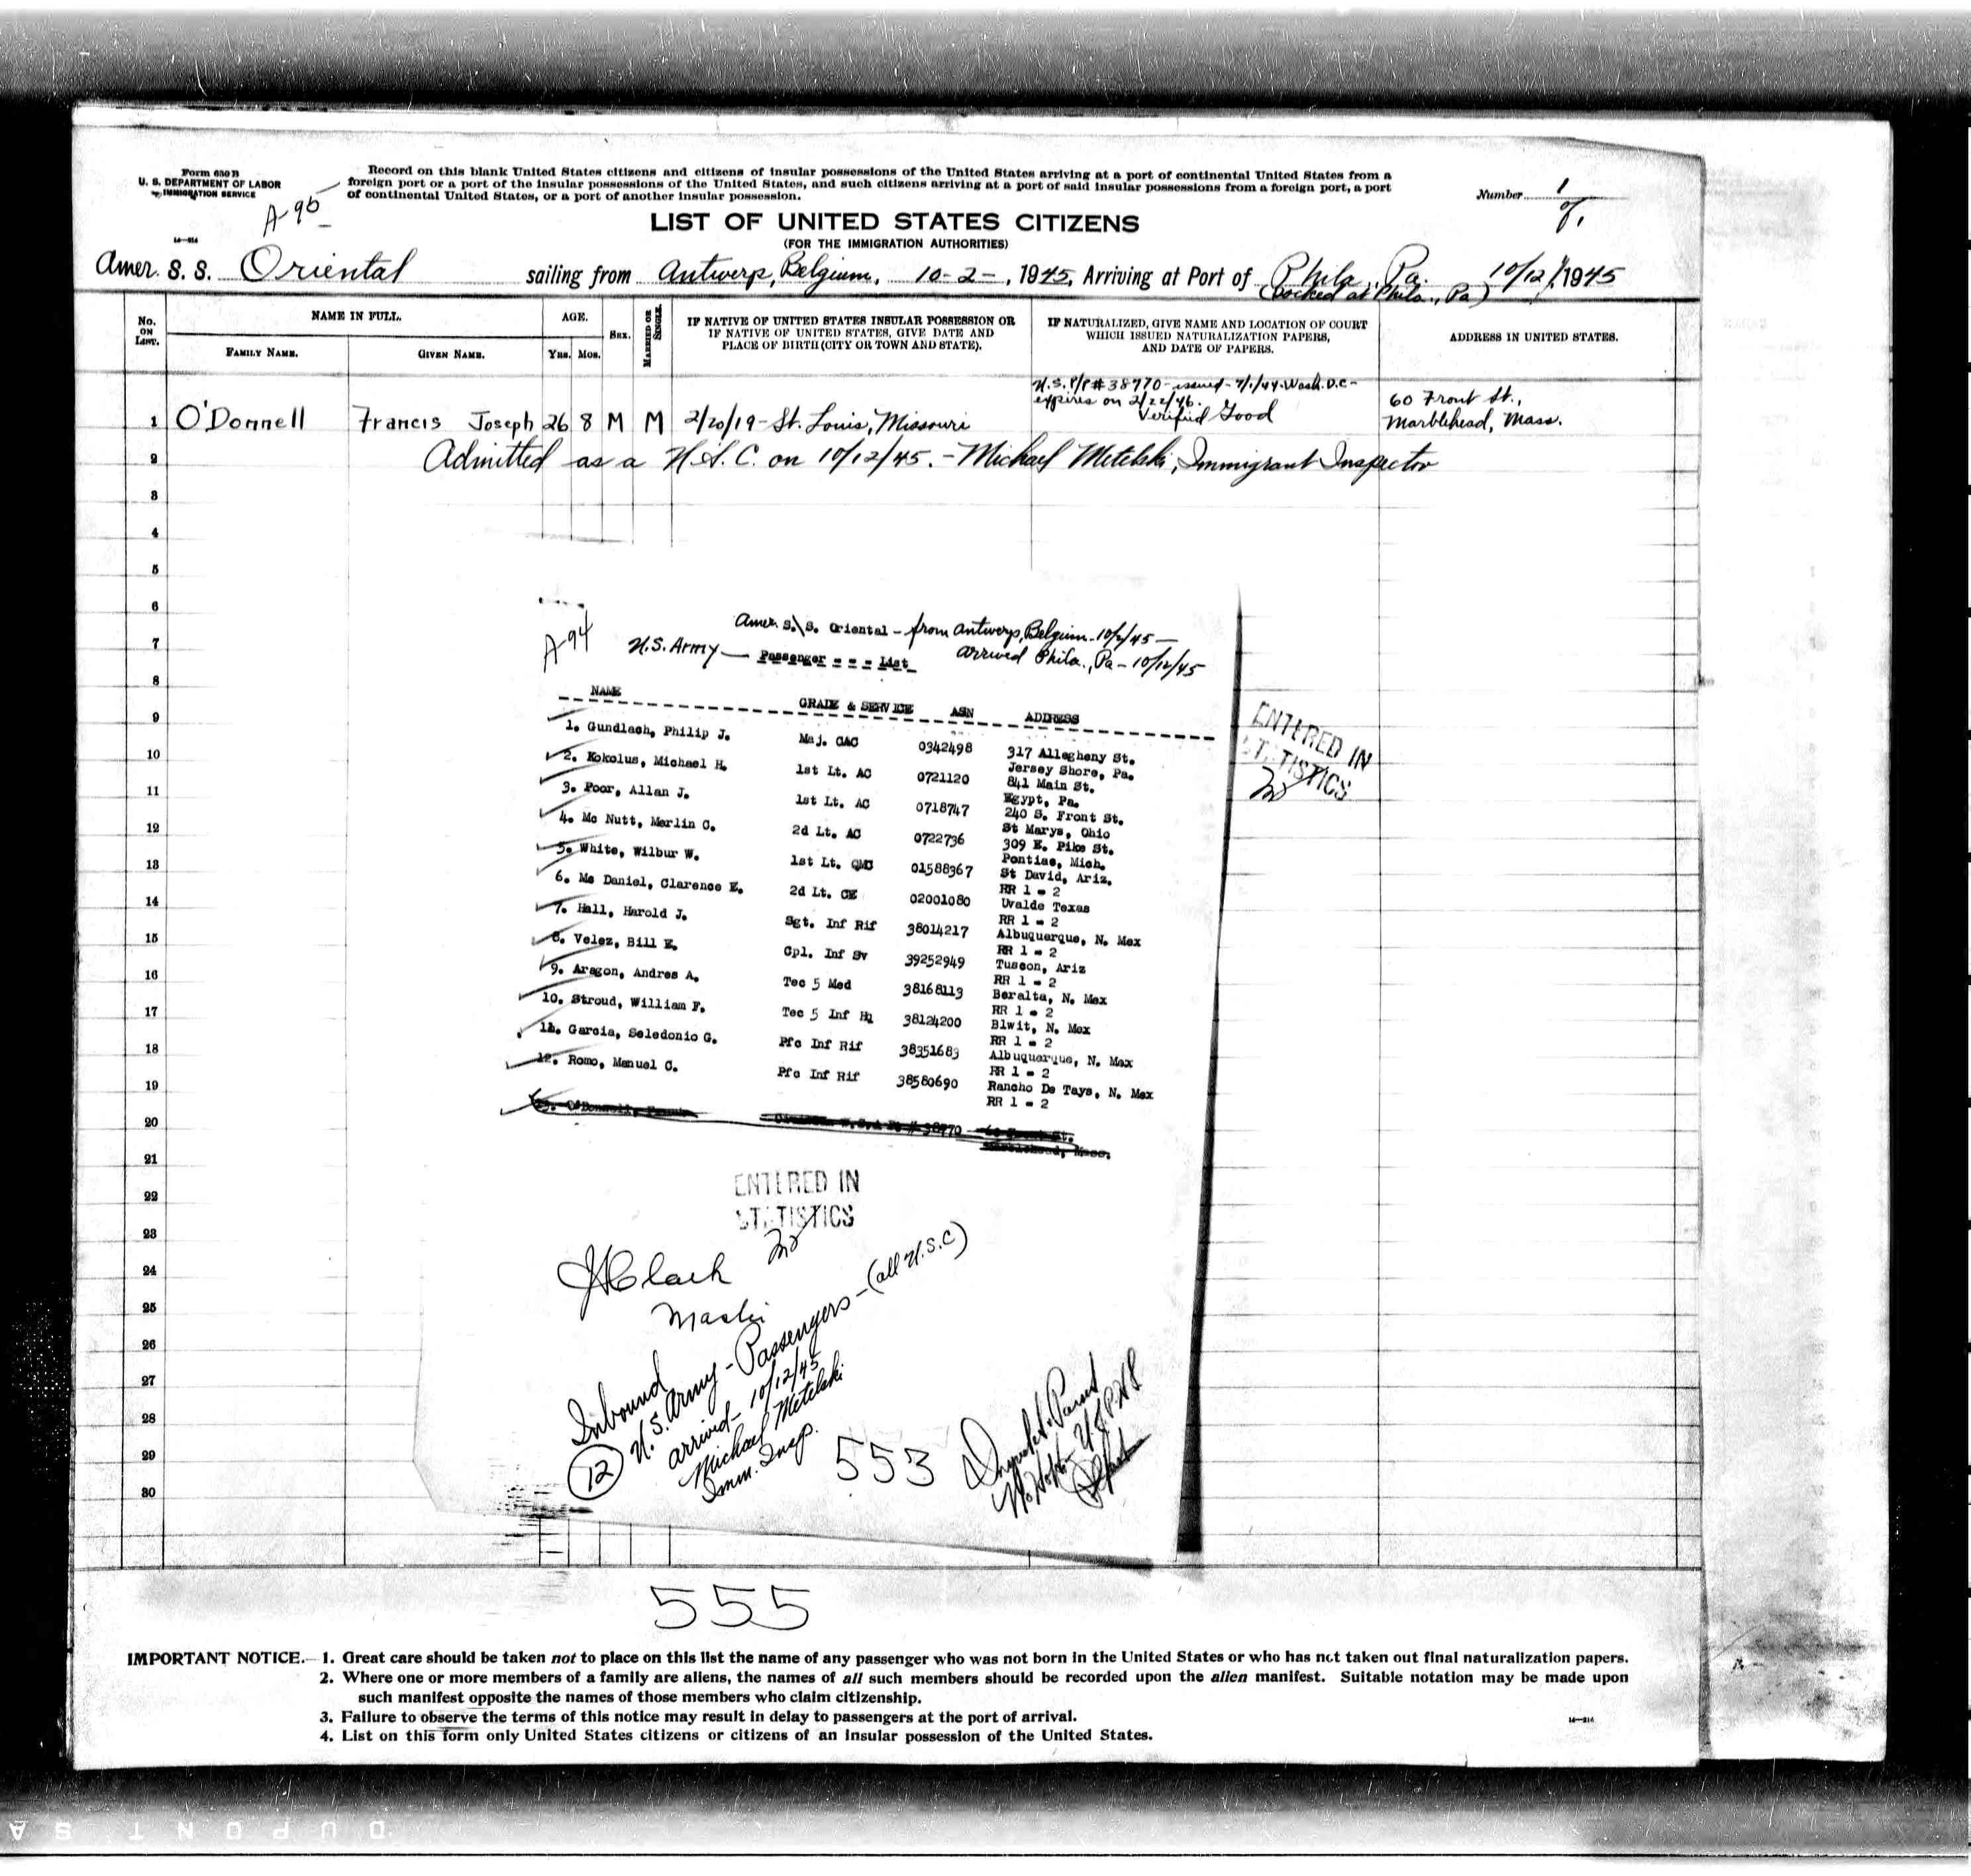 Form 630 B
U. S. DEPARTMENT OF LABOR
IMMIGRATION SERVICE
A-95
Record on this blank United States citizens and citizens of insular possessions of the United States arriving at a port of continental United States from a
foreign port or a port of the insular possessions of the United States, and such citizens arriving at a port of said insular possessions from a foreign port, a port
of continental United States, or a port of another insular possession.
Number 1
LIST OF UNITED STATES CITIZENS
(FOR THE IMMIGRATION AUTHORITIES)
Amer. S. S. Oriental sailing from Antwerp, Belgium, 10-2-, 1945, Arriving at Port of Phila., Pa. 10/12/, 1945
(Docked at Phila., Pa)
No. ON LIST.
NAME IN FULL.
FAMILY NAME.
GIVEN NAME.
AGE.
YRS. MOS.
SEX.
MARRIED OR SINGLE
IF NATIVE OF UNITED STATES INSULAR POSSESSION OR
IF NATIVE OF UNITED STATES, GIVE DATE AND
PLACE OF BIRTH (CITY OR TOWN AND STATE).
IF NATURALIZED, GIVE NAME AND LOCATION OF COURT
WHICH ISSUED NATURALIZATION PAPERS,
AND DATE OF PAPERS.
ADDRESS IN UNITED STATES.
U.S. P/P # 38770 - issued - 7/1/44 - Wash. D.C. -
expires on 2/22/46.
Verified Good
60 Front St.,
Marblehead, Mass.
1 O'Donnell Francis Joseph 26 8 M M 2/20/19 - St. Louis, Missouri
2 Admitted as a U.S.C. on 10/12/45. - Michael Metelski, Immigrant Inspector
3
4
5
6
7
8
9
10
11
12
13
14
15
16
17
18
19
20
21
22
23
24
25
26
27
28
29
30
A-94
Amer. S.S. Oriental - from Antwerp, Belgium - 10/2/45 -
arrived Phila., Pa - 10/12/45
U.S. Army - Passenger - - - List
NAME GRADE & SERVICE ASN ADDRESS
1. Gundlach, Philip J. Maj. CAC 0342498 317 Allegheny St.
Jersey Shore, Pa.
2. Kokolus, Michael H. 1st Lt. AC 0721120 841 Main St.
Egypt, Pa.
3. Poor, Allan J. 1st Lt. AC 0718747 240 S. Front St.
St Marys, Ohio
4. Mc Nutt, Merlin C. 2d Lt. AC 0722736 309 E. Pike St.
Pontiac, Mich.
5. White, Wilbur W. 1st Lt. QMC 01588967 St David, Ariz.
RR 1 - 2
6. Mc Daniel, Clarence E. 2d Lt. CE 02001080 Uvalde Texas
RR 1 - 2
7. Hall, Harold J. Sgt. Inf Rif 38014217 Albuquerque, N. Mex
RR 1 - 2
8. Velez, Bill E. Cpl. Inf Sv 39252949 Tuscon, Ariz
RR 1 - 2
9. Aragon, Andres A. Tec 5 Med 38168113 Beralta, N. Mex
RR 1 - 2
10. Stroud, William F. Tec 5 Inf Hq 38124200 Blwit, N. Mex
RR 1 - 2
11. Garcia, Seledonio G. Pfc Inf Rif 38351683 Albuquerque, N. Mex
RR 1 - 2
12. Romo, Manuel C. Pfc Inf Rif 38580690 Rancho De Tays, N. Mex
RR 1 - 2
ENTERED IN
STATISTICS
ENTERED IN
STATISTICS
JHClark
Master
Inbound
12 U.S. Army - Passengers - (all U.S.C)
arrived - 10/12/45
Michael Metelski
Imm. Insp.
553
555
IMPORTANT NOTICE.— 1. Great care should be taken not to place on this list the name of any passenger who was not born in the United States or who has not taken out final naturalization papers.
2. Where one or more members of a family are aliens, the names of all such members should be recorded upon the alien manifest. Suitable notation may be made upon
such manifest opposite the names of those members who claim citizenship.
3. Failure to observe the terms of this notice may result in delay to passengers at the port of arrival.
4. List on this form only United States citizens or citizens of an insular possession of the United States.
DUPONT SA